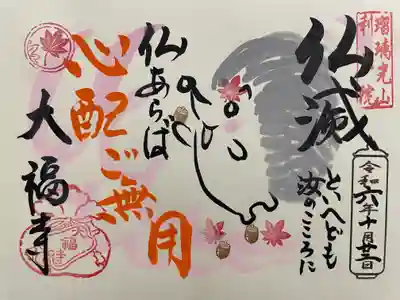 瑠璃光山
仏滅
といへども
汝のこころに
令和六年十月廿三日
仏あらば
心配ご無用
大福寺
大福寺